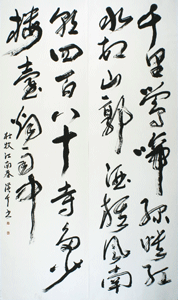 千里鶯啼綠映紅
水村山郭酒旗風南
朝四百八十寺多少
樓臺烟雨中
杜牧江南春